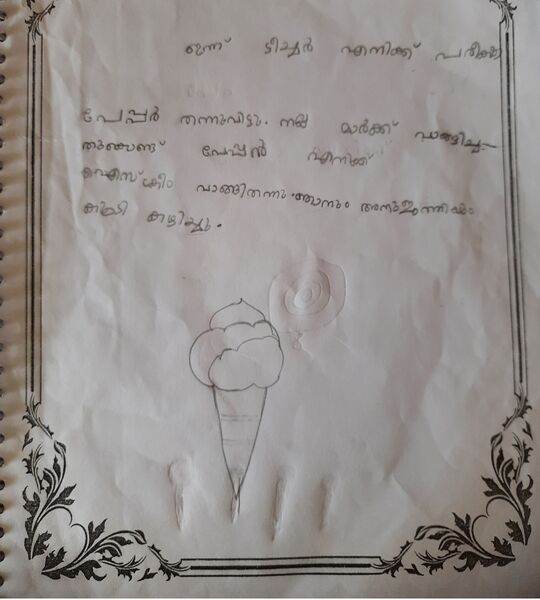 ഇന്ന് ടീച്ചർ എനിക്ക് പരീക്ഷ
പേപ്പർ തന്നുവിട്ടു. നല്ല മാർക്ക് വാങ്ങിച്ച-
തുകൊണ്ട് പേപ്പൻ എനിക്ക്
ഐസ്ക്രീം വാങ്ങിതന്നു. ഞാനും അനുജത്തിയും
കൂടി കഴിച്ചു.